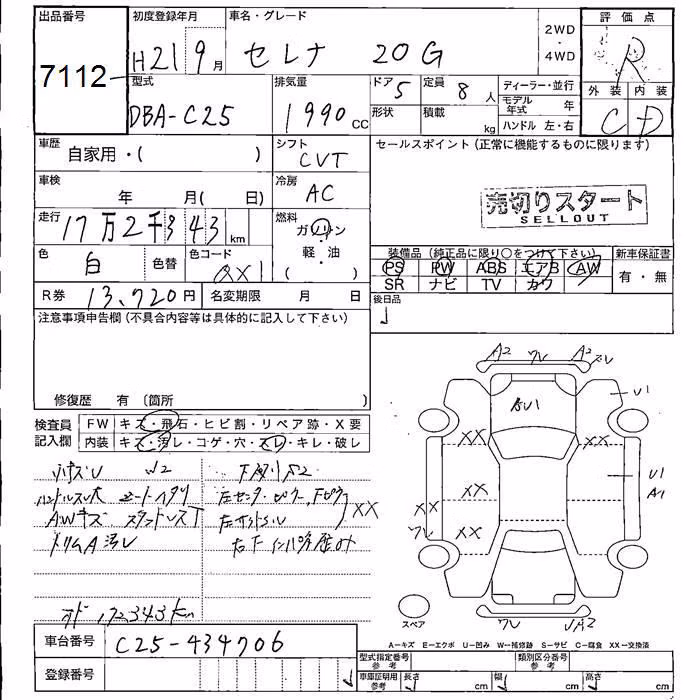 出品番号
7112
初度登録年月
H21 9月
車名・グレード
セレナ 20G
2WD
4WD
評価点
R
外装 内装
C D
型式
DBA-C25
排気量
1990 CC
ドア 5
形状
定員 8 人
積載 kg
ディーラー・並行
モデル年式 年
ハンドル 左・右
車歴
自家用・( )
シフト
CVT
車検
年 月( 日)
冷房
AC
走行
17万2千343 km
燃料
ガソリン
軽・油
( )
色
白
色替
色コード
QX1
R券 13,720円
名変期限 月 日
セールスポイント (正常に機能するものに限ります)
売切りスタート
SELLOUT
装備品 (純正品に限り○をつけて下さい)
PS PW ABS エアB AW
SR ナビ TV カワ
新車保証書
有・無
後日品
注意事項申告欄 (不具合内容等は具体的に記入して下さい)
修復歴 有 〔箇所 〕
検査員
記入欄
FW キズ・飛石・ヒビ割・リペア跡・X要
内装 キズ・汚レ・コゲ・穴・スレ・キレ・破レ
W2
ハンドルスレ大
AWキズ
XX
オド 172343km
A2 ワレ A2
U1
BU1
XX XX
XX
U1
A1
XX
ワレ XX
ワレ
スペア
A=キズ E=エクボ U=凹み W=補修跡 S=サビ C=腐食 XX=交換済
車台番号
C25-434706
登録番号
型式指定番号
参考
類別区分番号
参考
車庫証明用
参考
長さ cm
幅 cm
高さ cm